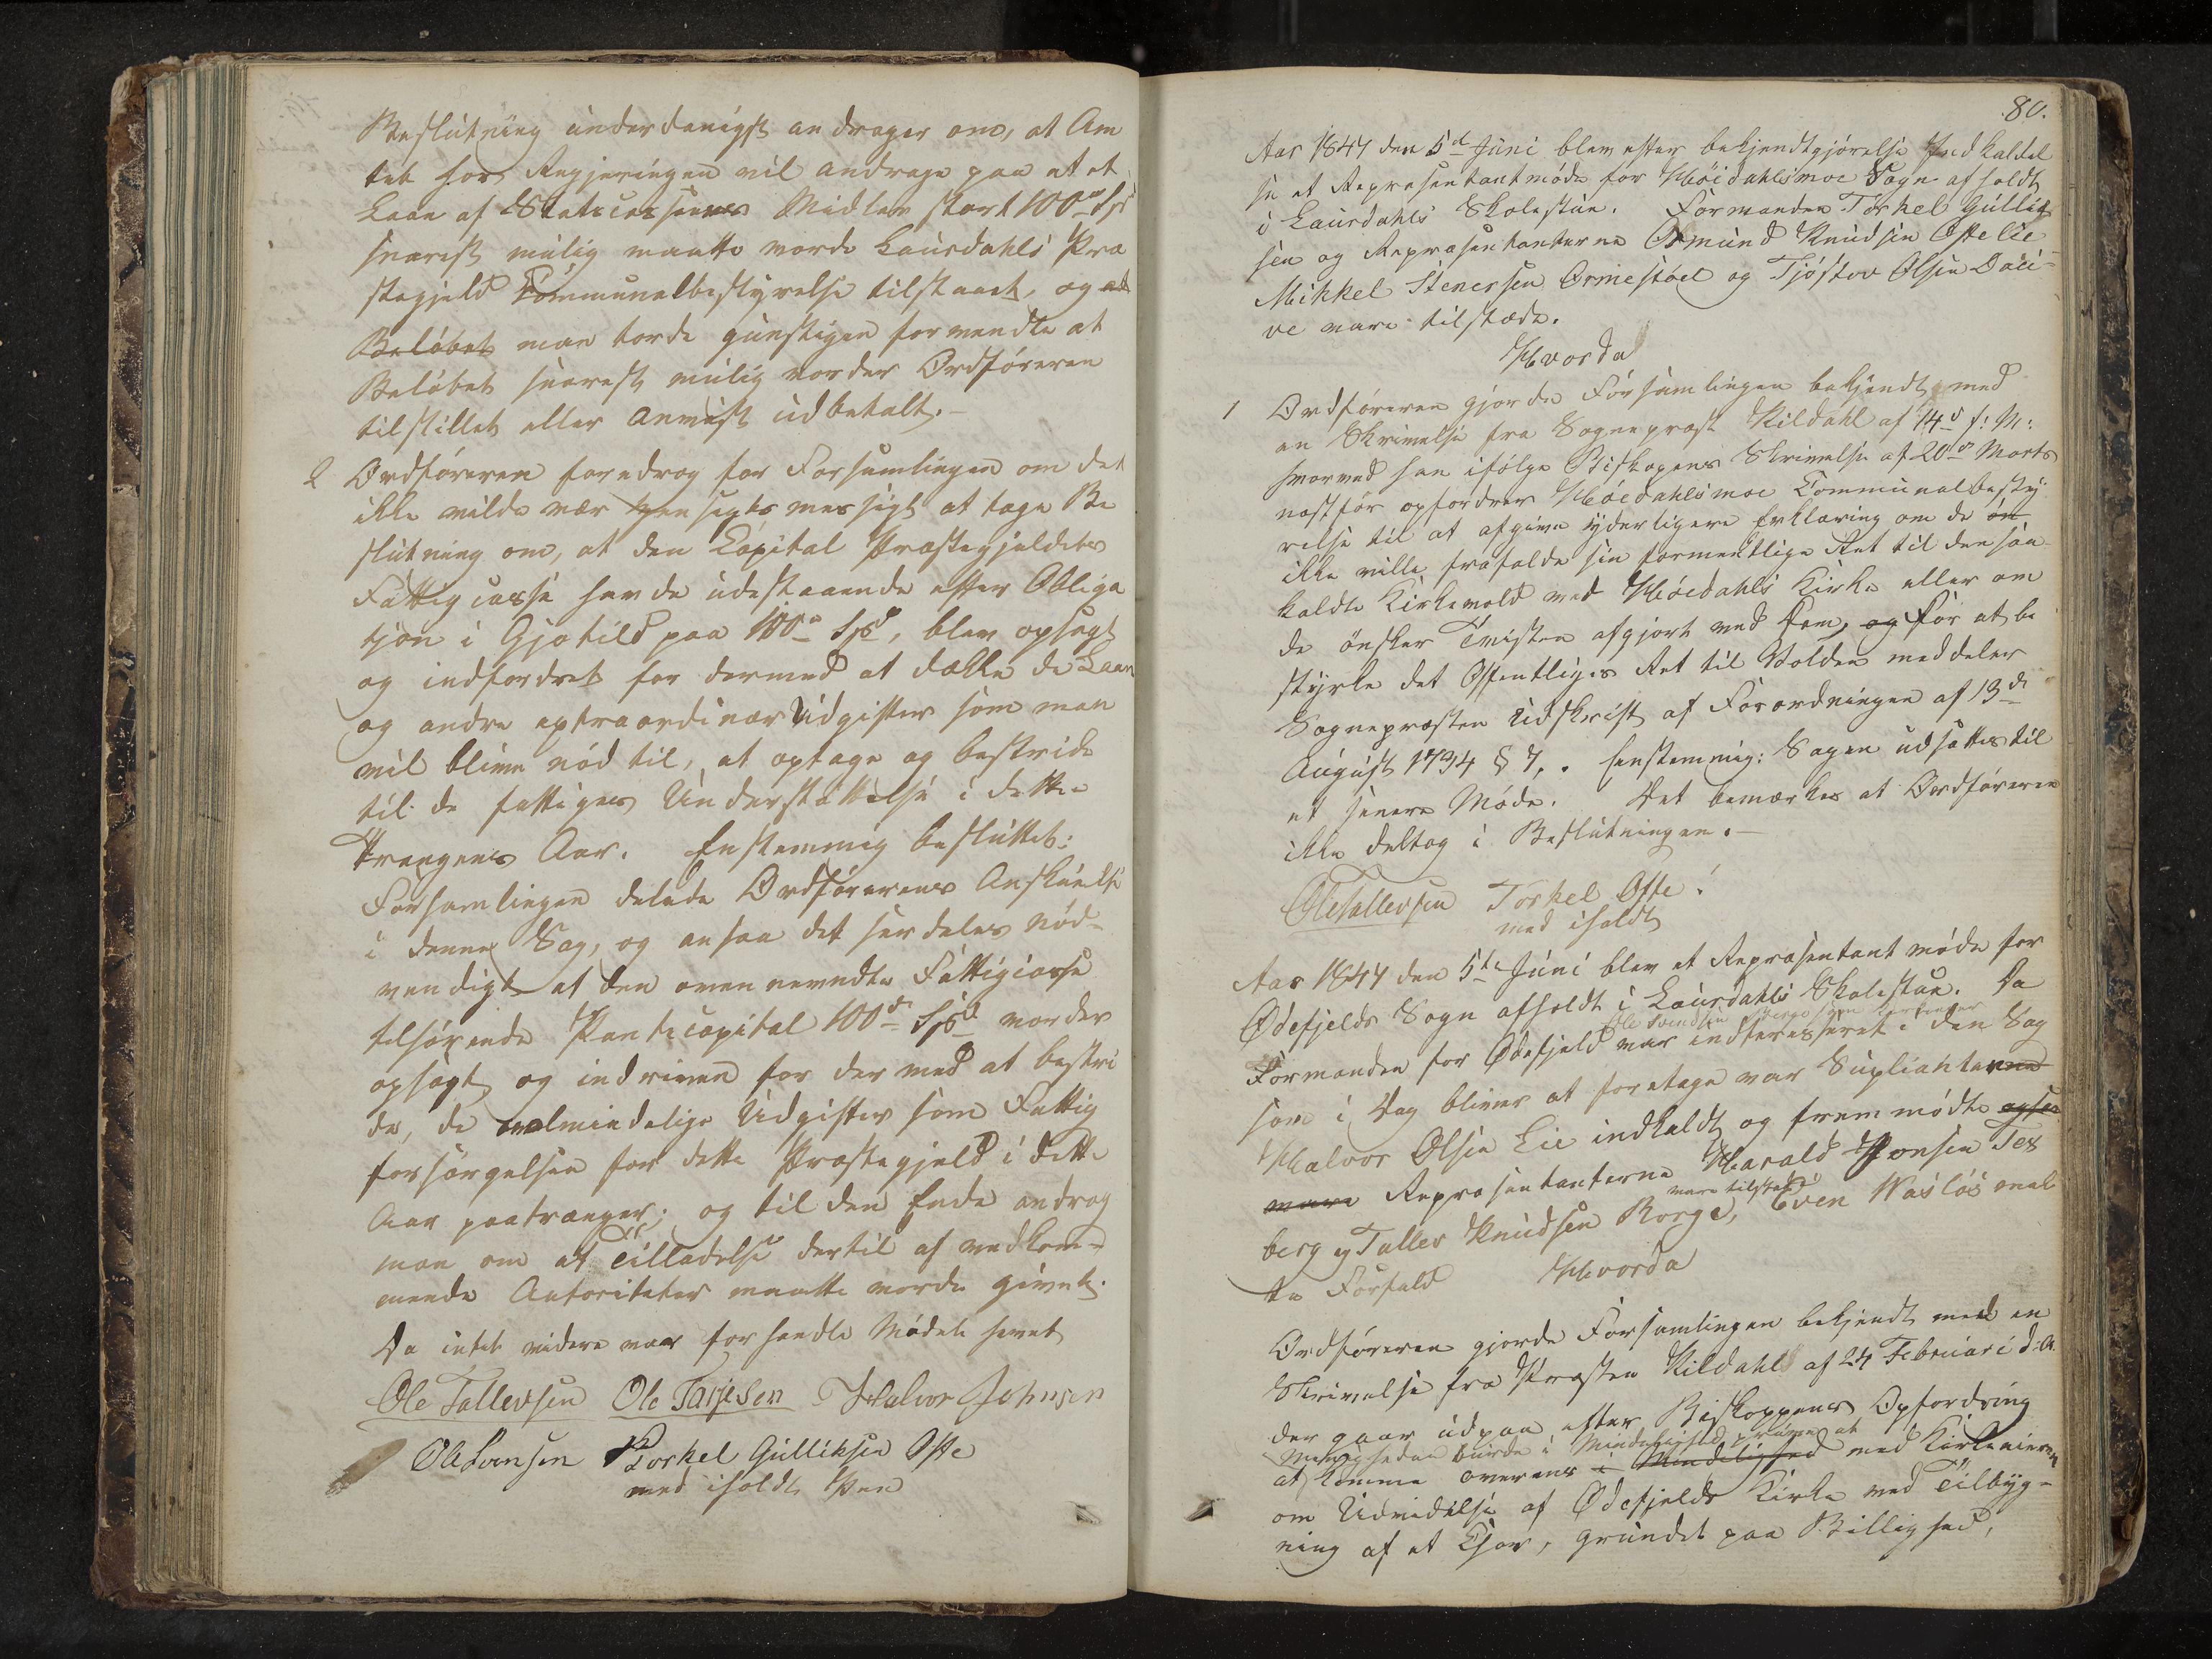 Beslutning underdanigst andrager om, at Am
tet hos Regjeringen vil andrage paa at et
Laan af Statscassens Midler stort 100 Spd
snarest mulig maatte vorde Laurdahls Præ
stegjeld Communalbestyrelse tilstaaet, og at
Beløbet man torde gunstigen formendte at
Beløbet snarest mulig vorder Ordføreren
tilstillet eller anvist udbetalt.-
2 Ordføreren foredrog for Forsamlingen om det
ikke vilde vær hensigtsmessigt at tage Be
slutning om, at den Capital Præstegjeldets
Fattigcasse havde udestaaende efter Obliga
tjon i Gjotild paa 100 Spd, blev opsagt
og indfordret for dermed at dække de Laan
og andre extraordinær Udgifter som man
vil blive nød til, at optage og bestride
til de fattiges Understøttelse i dette
Trangens Aar. Enstemmig besluttet:
Forsamlingen delede Ordførerens Anskuelse
i denne Sag, og ansaa det særdeles nød-
vendigt at den ovennevndte Fattigcasse
tilhørende Panticapital 100 Spd vorder
opsagt og indreven for dermed at bestri
de, de almindelige Udgifter som Fattig
forsørgelsen for dette Præstegjeld i dette
Aar paatrænger; og til den Ende androg
man om at Tilladelse dertil af vedkom-
mende Autoriteter maatte vorde givet.
Da intet videre var forhandle Mødet hevet
Ole Tallevsen Ole Tarjesen Halvor Johnsen
Ole Svensen Torkel Gulliksen Ofte
med iholdt Pen
80.
Aar 1847 den 5d Juni blev efter bekjendtgjørelse Indkaldel
se et Repræsentantmøde for Høidahlsmoe Sogn afholdt
i Laurdahls Skolestue. Formanden Torkel Gullik
sen og Repræsentanterne Osmund Knudsen Ofte Lie
Mikkel Stenersen Ormestøel og Tjøstov Olsen Dali-
ve vare tilstæde.
Hvorda
1 Ordføreren gjorde Forsamlingen bekjendt med
en Skrivelse fra Sognepræst Kildahl af 14d f: M:
hvorved han ifølge Biskopens Skrivelse af 20d Marts
næstfør opfordrer Høidahlsmoe Communalbesty
relse til at afgive yderligere Erklæring om de om
ikke ville frafalde sin formentlige Ret til den saa
kaldte Kirkevold ved Høidahls Kirke eller om
de ønsker Tvisten afgjort ved Dom, og for at be
styrke det Offentliges Ret til Volden meddeler
Sognepræsten Udskrift af Forordningen af 13de
August 1734 § 7,. Enstemmig: Sagen udsættes til
et senere Møde. Det bemærkes at Ordføreren
ikke deltog i Beslutningen.-
Ole Tallevsen Torkel Ofte
med iholdt
Aar 1847 den 5te Juni blev et Repræsentantmøde for
Ødefjelds Sogn afholdt i Laurdahls Skolestue. Da
Formanden for Ødefjeld var indteresseret i den Sag
som i Dag bliver at foretage var Suplianterne
Halvor Olsen Lie indkaldt og fremmødte ogsaa
vare Repræsentanterne Harald Hansen Tex
vare tilstæde
berg og Tallev Knudsen Borge, Even Waslös meld
te Forfald Hvorda
Ordføreren gjorde Forsamlingen bekjendt med en
Skrivelse fra Præsten Kildahl af 24 Februari d: A.
der gaar udpaa efter Biskoppens Opfordring
Menigheden burde i Mindelighed prøve at
at komme overens i Mindelighed med Kirkeeieren
om Udvidelse af Ødefjelds Kirke ved Tilbyg-
ning af et Chor, grundet paa Billighed,